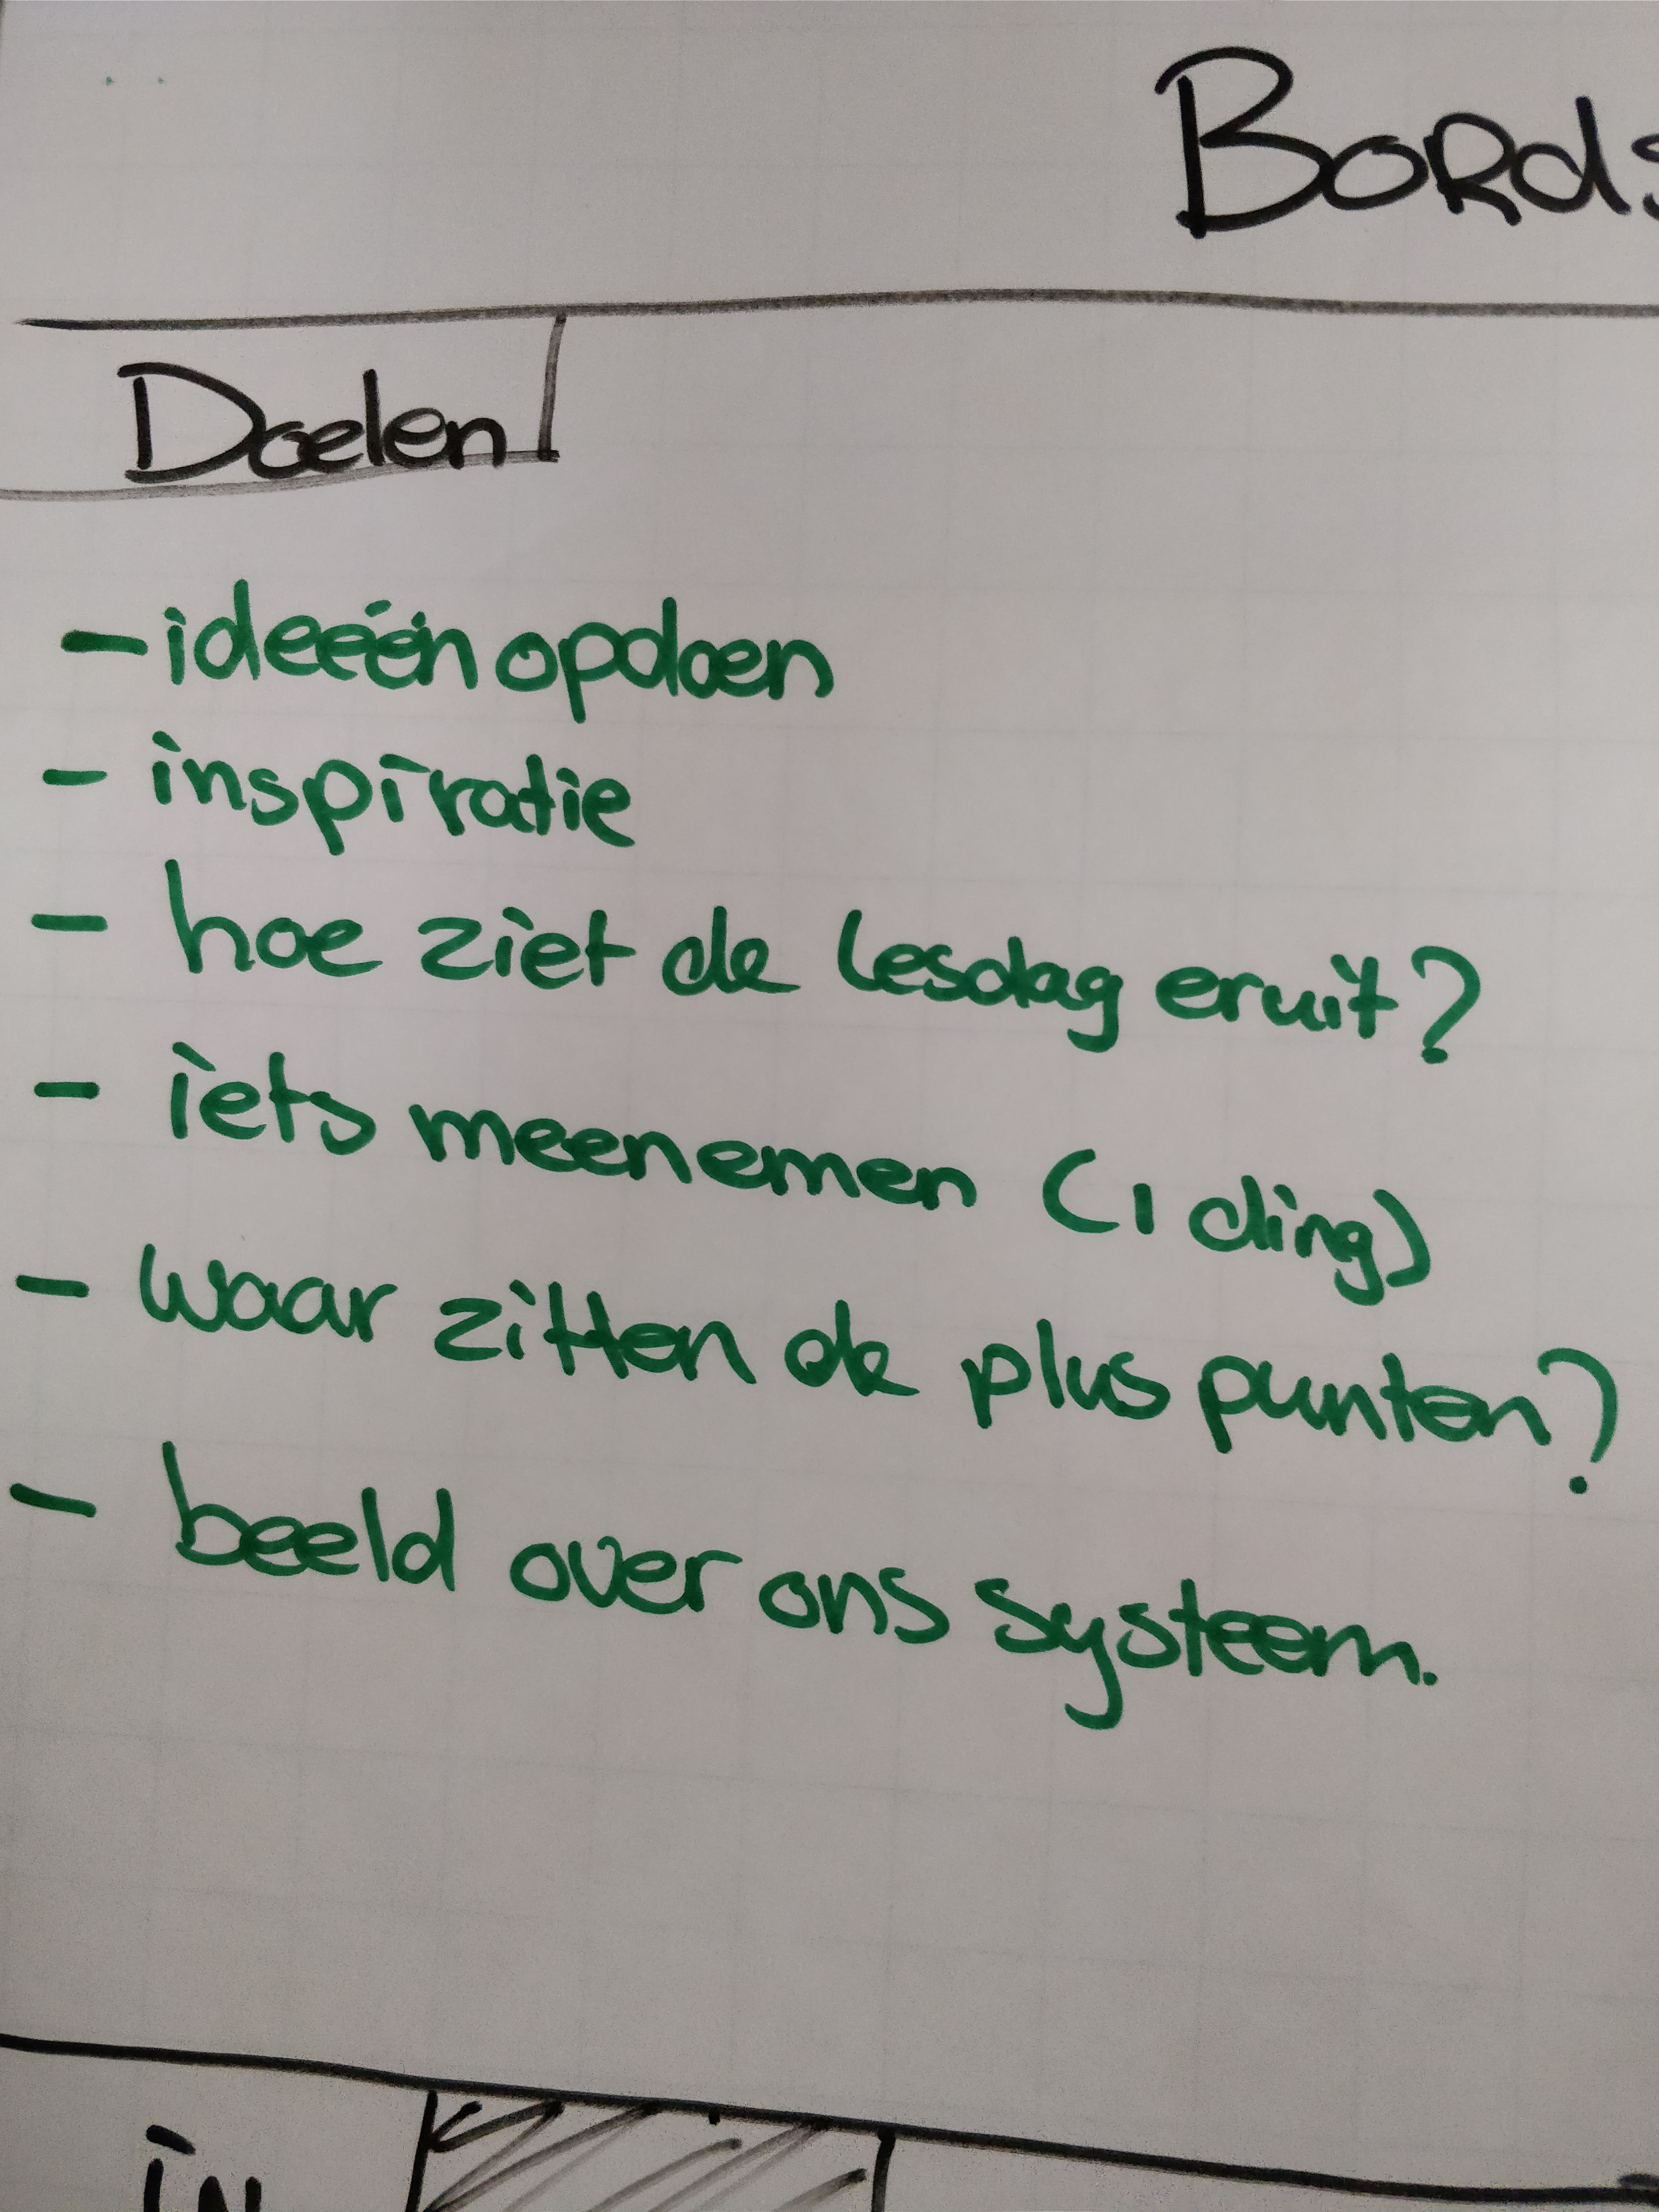 Bords
Doelen
- ideeën opdoen
- inspiratie
- hoe ziet de lesdag eruit?
- iets meenemen (1 ding)
- waar zitten de plus punten?
- beeld over ons systeem.
in